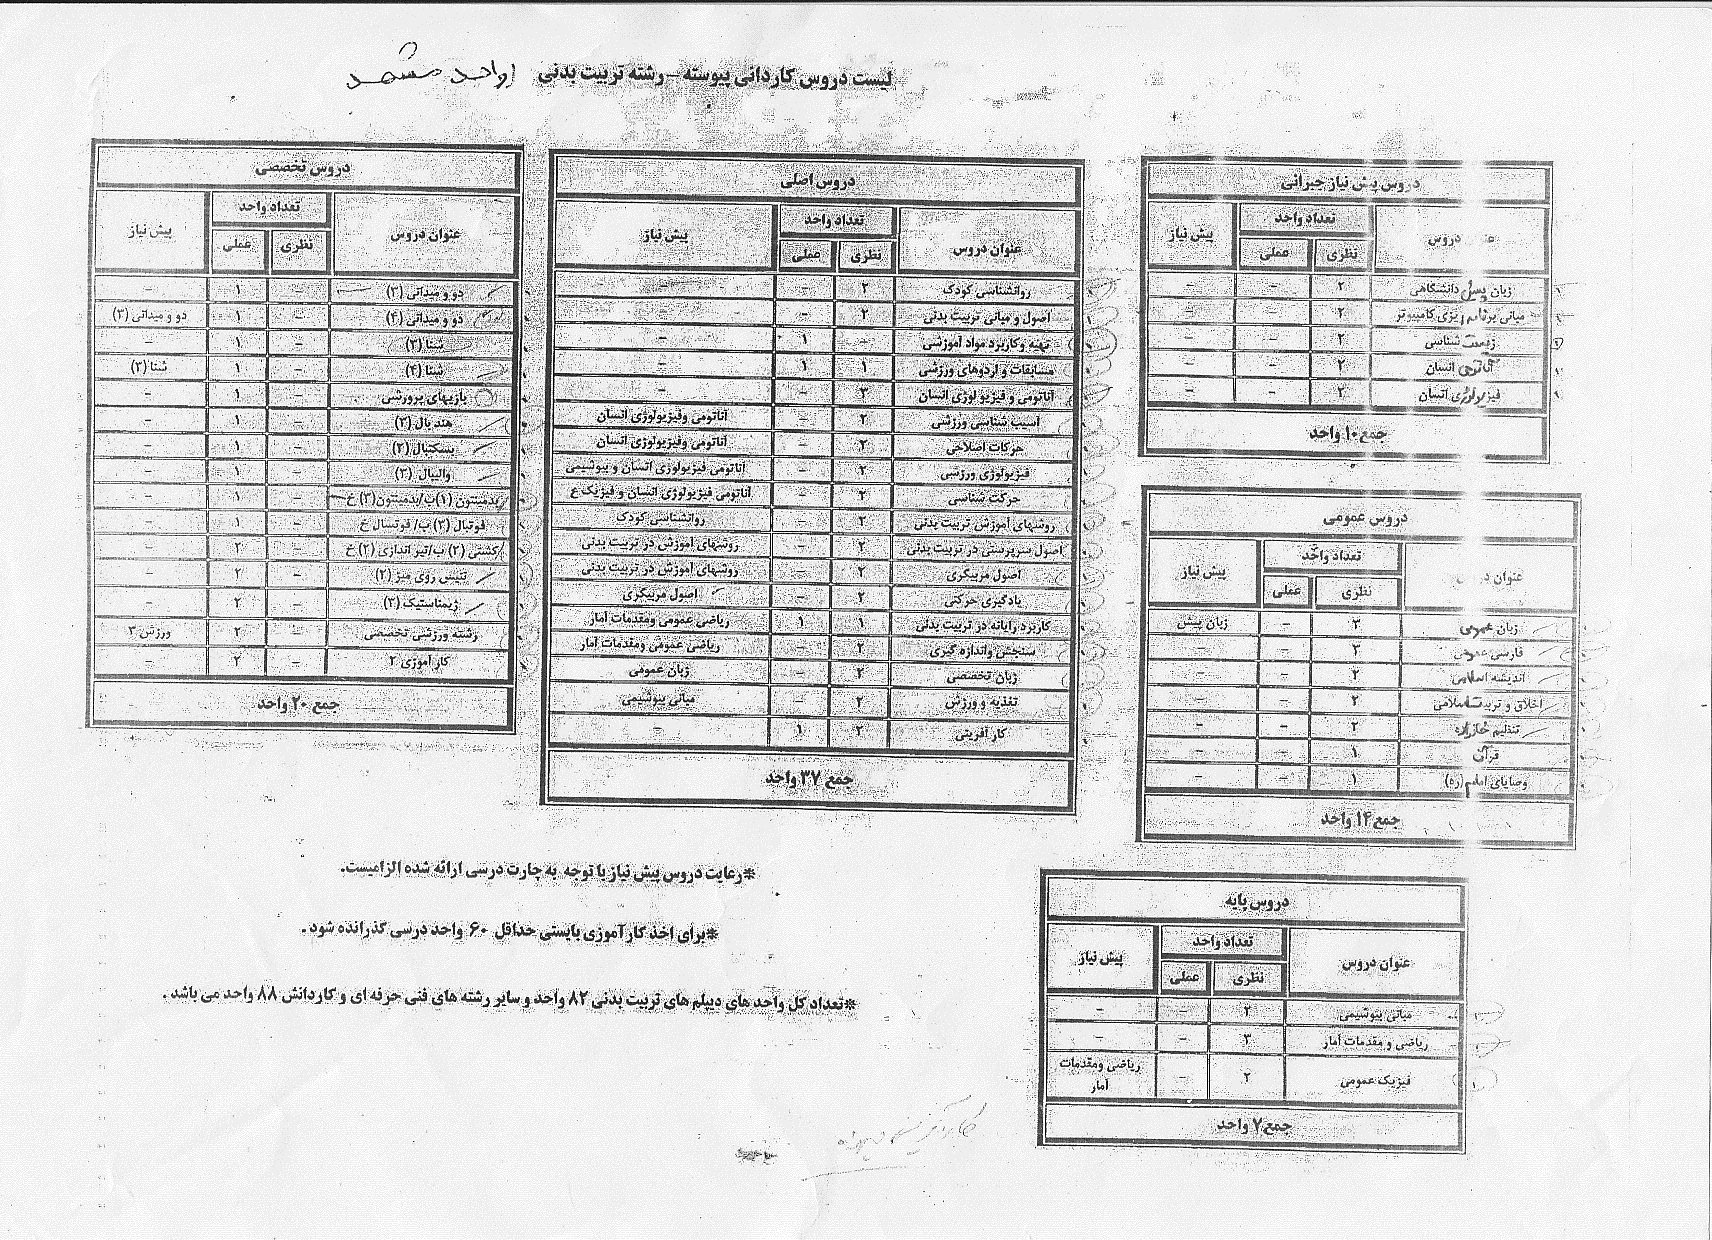 لیست دروس کاردانی پیوسته - رشته تربیت بدنی (واحد مشهد
دروس پیش نیاز جبرانی
عنوان دروس | تعداد واحد | پیش نیاز
نظری | عملی
زبان پیش دانشگاهی | ۲ | - | -
مبانی برنامه ریزی کامپیوتر | ۲ | - | -
زیست شناسی | ۲ | - | -
آناتومی انسان | ۲ | - | -
فیزیولوژی انسان | ۲ | - | -
جمع ۱۰ واحد
دروس عمومی
عنوان دروس | تعداد واحد | پیش نیاز
نظری | عملی
زبان عمومی | ۳ | - | زبان پیش
فارسی عمومی | ۳ | - | -
اندیشه اسلامی | ۲ | - | -
اخلاق و تربیت اسلامی | ۲ | - | -
تنظیم خانواده | ۲ | - | -
قرآن | ۱ | - | -
وصایای امام (ره) | ۱ | - | -
جمع ۱۴ واحد
دروس پایه
عنوان دروس | تعداد واحد | پیش نیاز
نظری | عملی
مبانی بیوشیمی | ۲ | - | -
ریاضی و مقدمات آمار | ۳ | - | -
فیزیک عمومی | ۲ | - | ریاضی ومقدمات آمار
جمع ۷ واحد
دروس اصلی
عنوان دروس | تعداد واحد | پیش نیاز
نظری | عملی
روانشناسی کودک | ۲ | - | -
اصول و مبانی تربیت بدنی | ۲ | - | -
تهیه وکاربرد مواد آموزشی | - | ۱ | -
مسابقات و اردوهای ورزشی | ۱ | ۱ | -
آناتومی و فیزیولوژی انسان | ۳ | - | -
آسیب شناسی ورزشی | ۲ | - | آناتومی وفیزیولوژی انسان
حرکات اصلاحی | ۲ | - | آناتومی وفیزیولوژی انسان
فیزیولوژی ورزشی | ۲ | - | آناتومی فیزیولوژی انسان و بیوشیمی
حرکت شناسی | ۲ | - | آناتومی فیزیولوژی انسان و فیزیک ع
روشهای آموزش تربیت بدنی | ۲ | - | روانشناسی کودک
اصول سرپرستی در تربیت بدنی | ۲ | - | روشهای آموزش در تربیت بدنی
اصول مربیگری | ۲ | - | روشهای آموزش در تربیت بدنی
یادگیری حرکتی | ۲ | - | اصول مربیگری
کاربرد رایانه در تربیت بدنی | ۱ | ۱ | ریاضی عمومی ومقدمات آمار
سنجش واندازه گیری | ۲ | - | ریاضی عمومی ومقدمات آمار
زبان تخصصی | ۲ | - | زبان عمومی
تغذیه و ورزش | ۲ | - | مبانی بیوشیمی
کار آفرینی | ۲ | ۱ | -
جمع ۳۷ واحد
دروس تخصصی
عنوان دروس | تعداد واحد | پیش نیاز
نظری | عملی
دو و میدانی (۳) | - | ۱ | -
دو و میدانی (۴) | - | ۱ | دو و میدانی (۳)
شنا (۳) | - | ۱ | -
شنا (۴) | - | ۱ | شنا (۳)
بازیهای پرورشی | - | ۱ | -
هند بال (۲) | - | ۱ | -
بسکتبال (۲) | - | ۱ | -
والیبال (۳) | - | ۱ | -
بدمینتون (۱) ب/بدمینتون(۲) خ | - | ۱ | -
فوتبال (۳) ب/ فوتسال خ | - | ۱ | -
کشتی (۲) ب/تیر اندازی (۲) خ | - | ۲ | -
تنیس روی میز (۲) | - | ۲ | -
ژیمناستیک (۲) | - | ۲ | -
رشته ورزشی تخصصی | - | ۲ | ورزش ۳
کار آموزی ۲ | - | ۲ | -
جمع ۲۰ واحد
*رعایت دروس پیش نیاز با توجه به چارت درسی ارائه شده الزامیست.
*برای اخذ کار آموزی بایستی حداقل ۶۰ واحد درسی گذرانده شود.
*تعداد کل واحد های دیپلم های تربیت بدنی ۸۲ واحد و سایر رشته های فنی حرفه ای و کاردانش ۸۸ واحد می باشد.